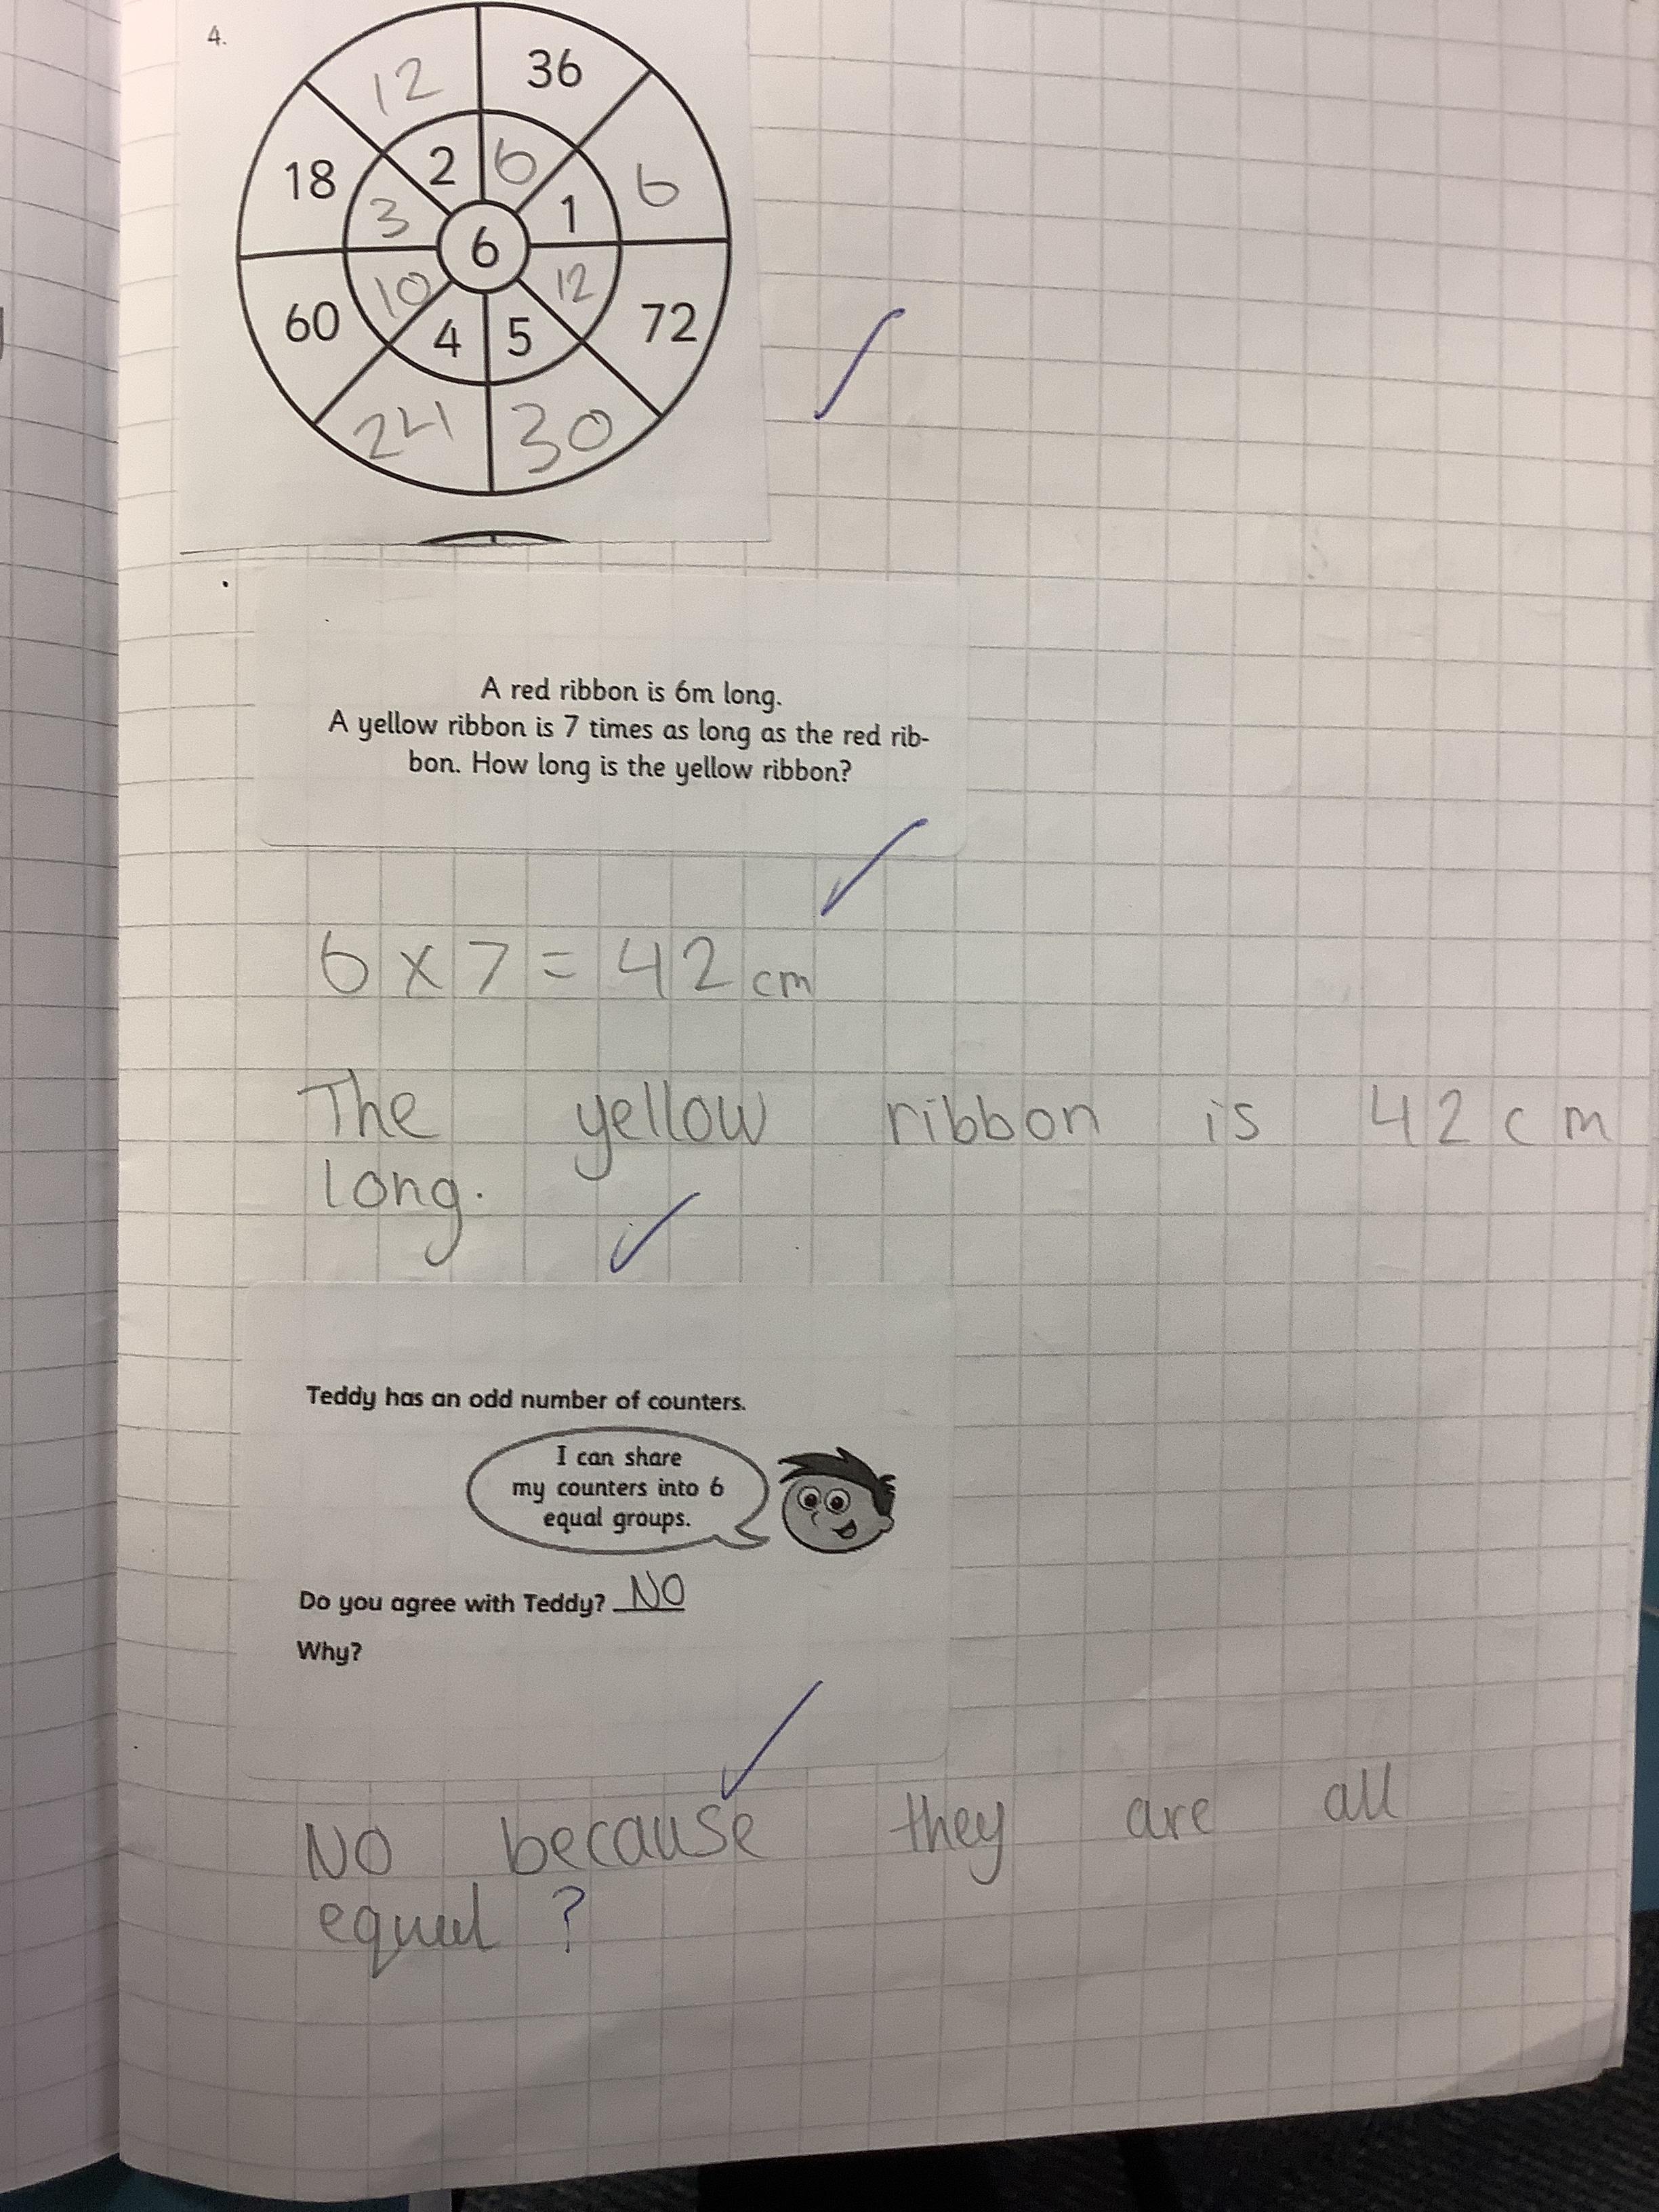 4.
12 36
18 2 6 6
3 1
6
10 12
60 4 5 72
24 30
A red ribbon is 6m long.
A yellow ribbon is 7 times as long as the red rib-
bon. How long is the yellow ribbon?
6 x 7 = 42 cm
The yellow ribbon is 42 cm
long.
Teddy has an odd number of counters.
I can share
my counters into 6
equal groups.
Do you agree with Teddy? NO
Why?
NO because they are all
equal ?